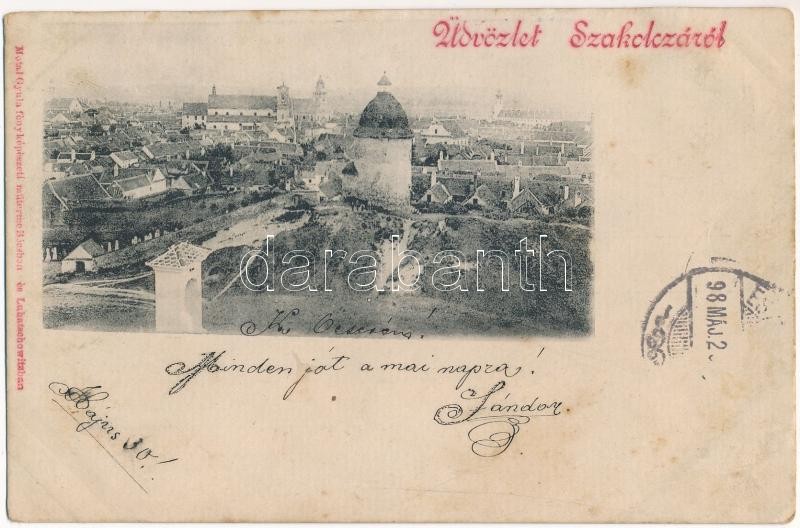 Üdvözlet Szakolczáról
Motal Gyula fényképészeti műterme Bécsben és Luhatschowitzban
darabanth
Minden jót a mai napra!
Sándor
Május 30!
98 MÁJ. 2